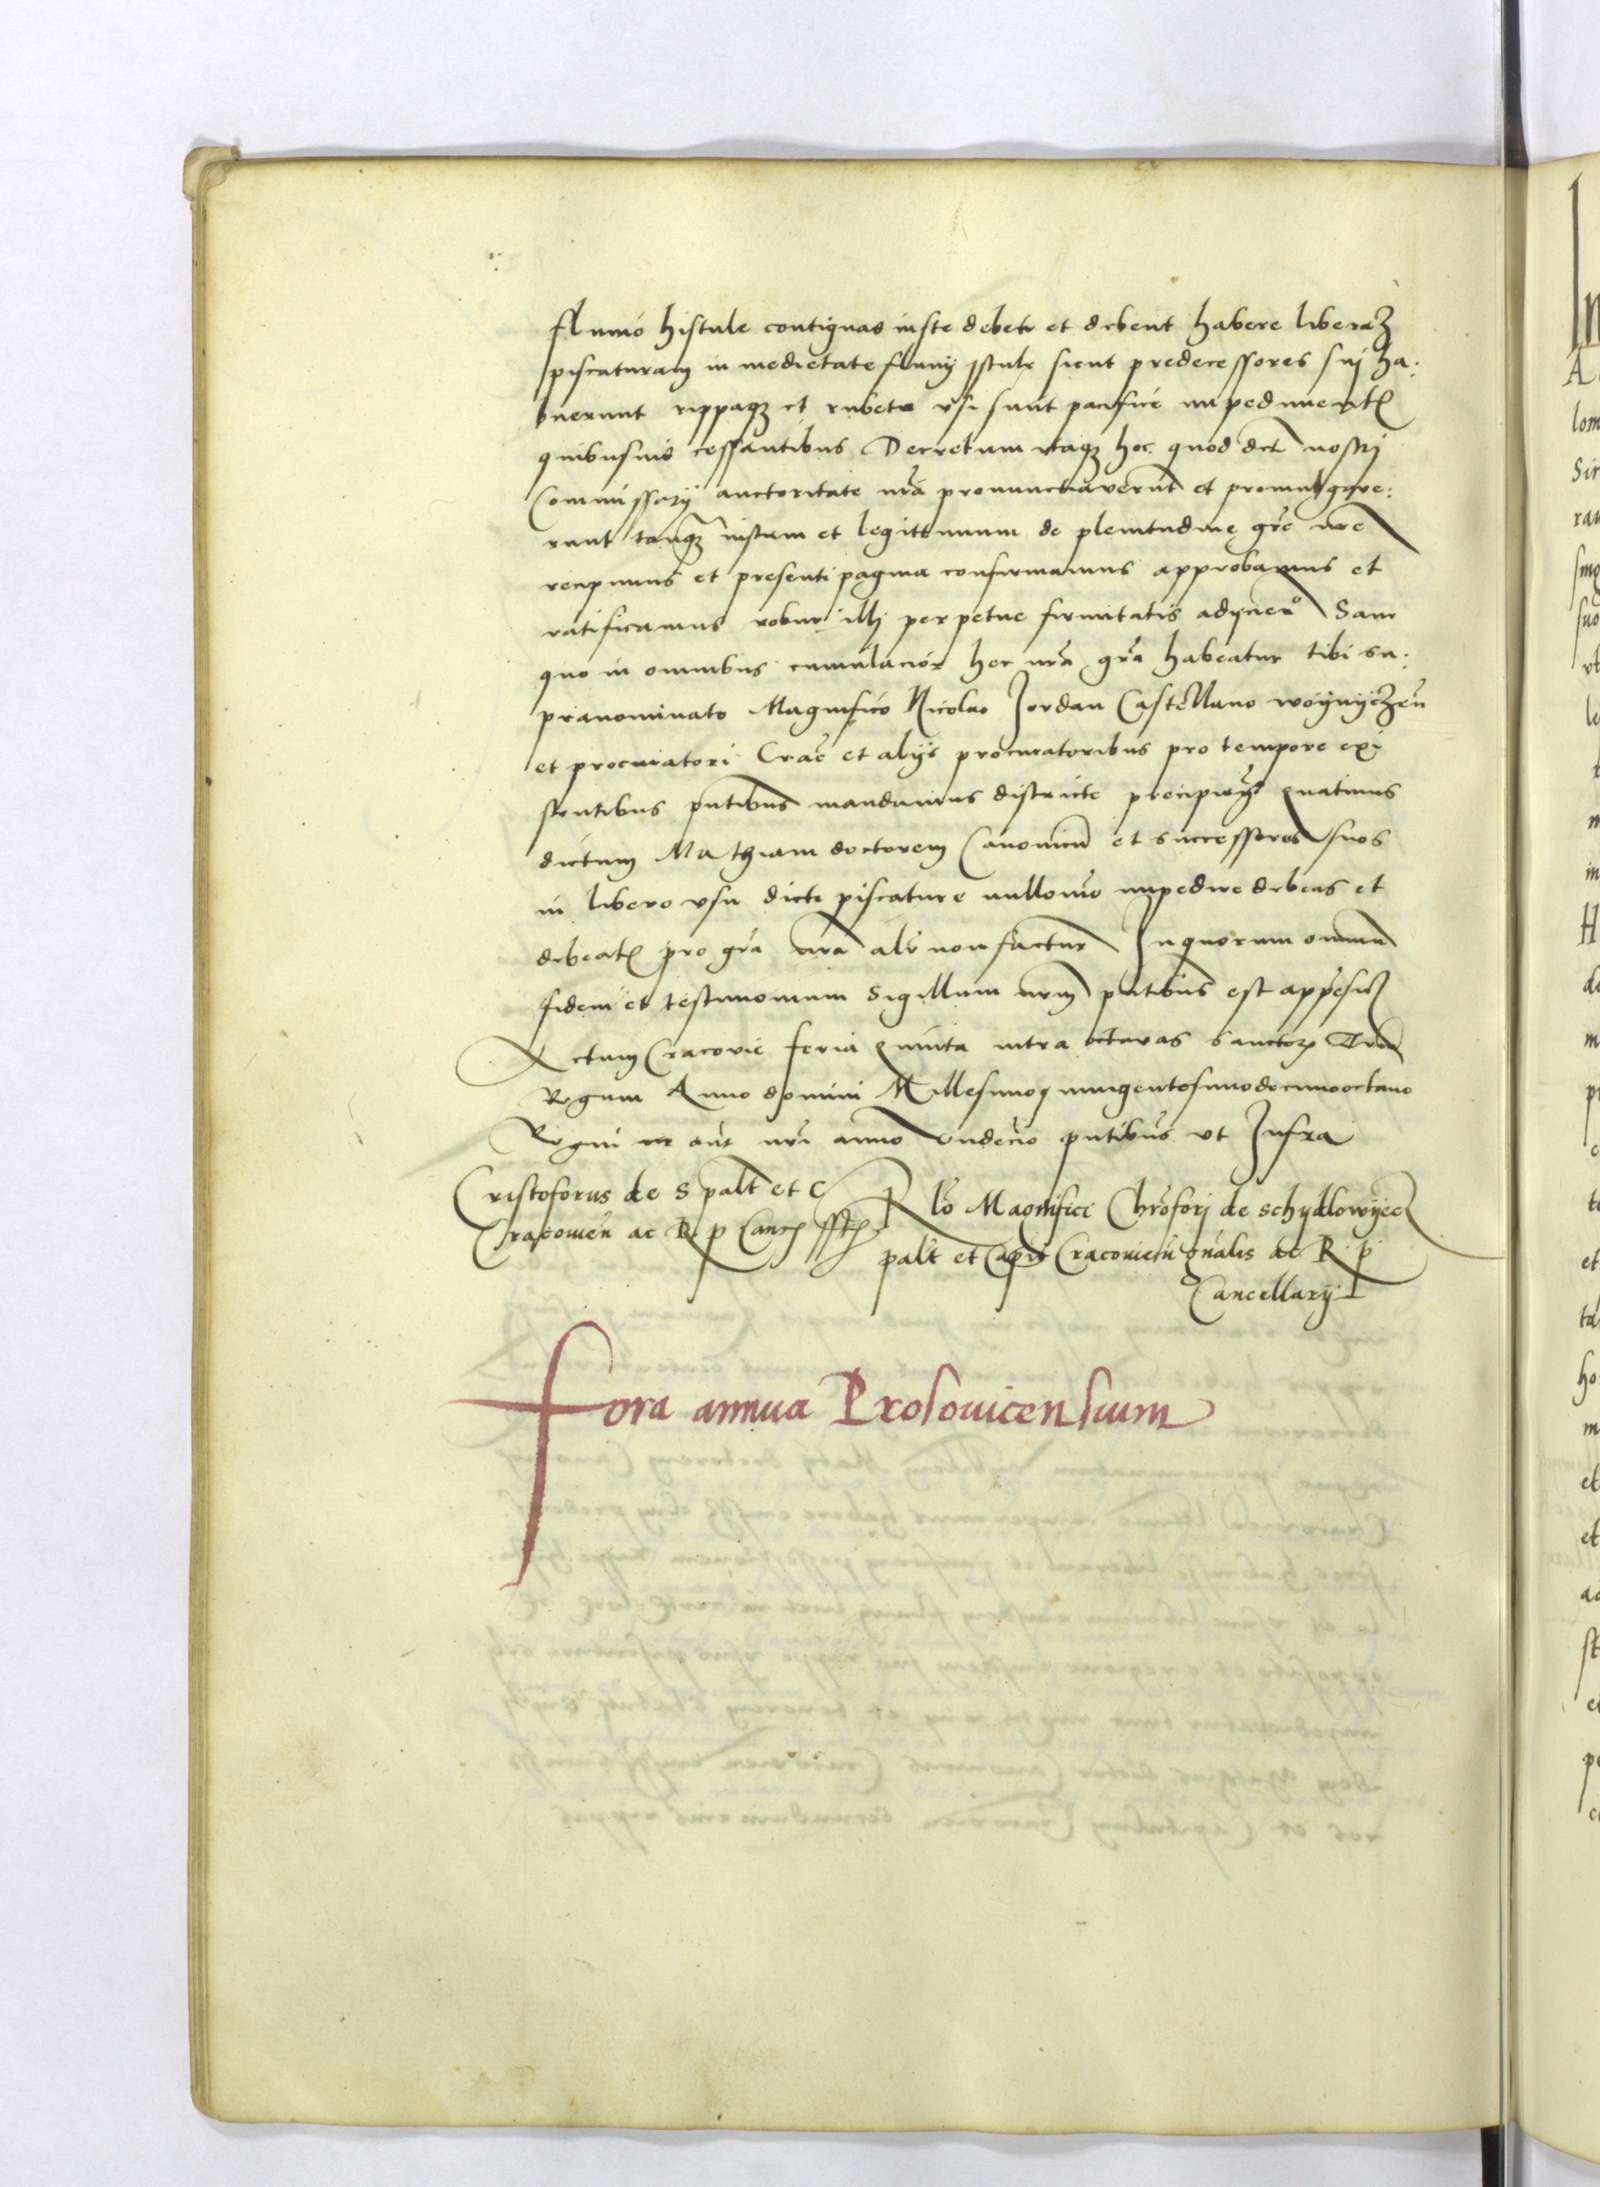 fluuio histule contiguas iuste debetr et debent habere liberaz
piscaturam in medietate fluuij jstule sicut predecessores suj ha:
buerunt rippaqz et rubeta vsi sunt pacifice impedimentis
quibusuis cessantibus Decretum itaqz hoc quod dcti nostrj
Commissarij auctoritate nra pronunctiauerunt et promulgaue:
runt tanqz iustum et legittimum de plenitudine gre nre
recipimus et presenti pagina confirmamus approbamus et
ratificamus robur illj perpetue firmitatis adijcien
quo in omnibus cumulacior hec nra gra habeatur tibi su:
pranominato Magnifico Nicolao Jordan Castellano woynyczen
et procuratori Crac et alijs procuratoribus pro tempore exi
stentibus pntibus mandamus districte quatinus
dictum Mathiam doctorem Canonicu et successores suos
in libero vsu dicte piscature nullomo impedire debeas et
debeatis pro gra nra alr non factur In quorum omniu
fidem et testimonium Sigillum nrm pntibus est appensu
Actum Cracovie feria quinta intra octavas sanctorz Triu
Regum Anno domini Millesimoquingentesimodecimooctauo
Regni aut nri anno vndecio pntibus vt Infra
Cristoforus de S palt et C
Cracouien ac R p Canc sst
Rlo Magnifici Chrofori de schydlowyecz
palt et Capit Cracouien gnalis ac R p
Cancellarij
fora annua Prosouicensium